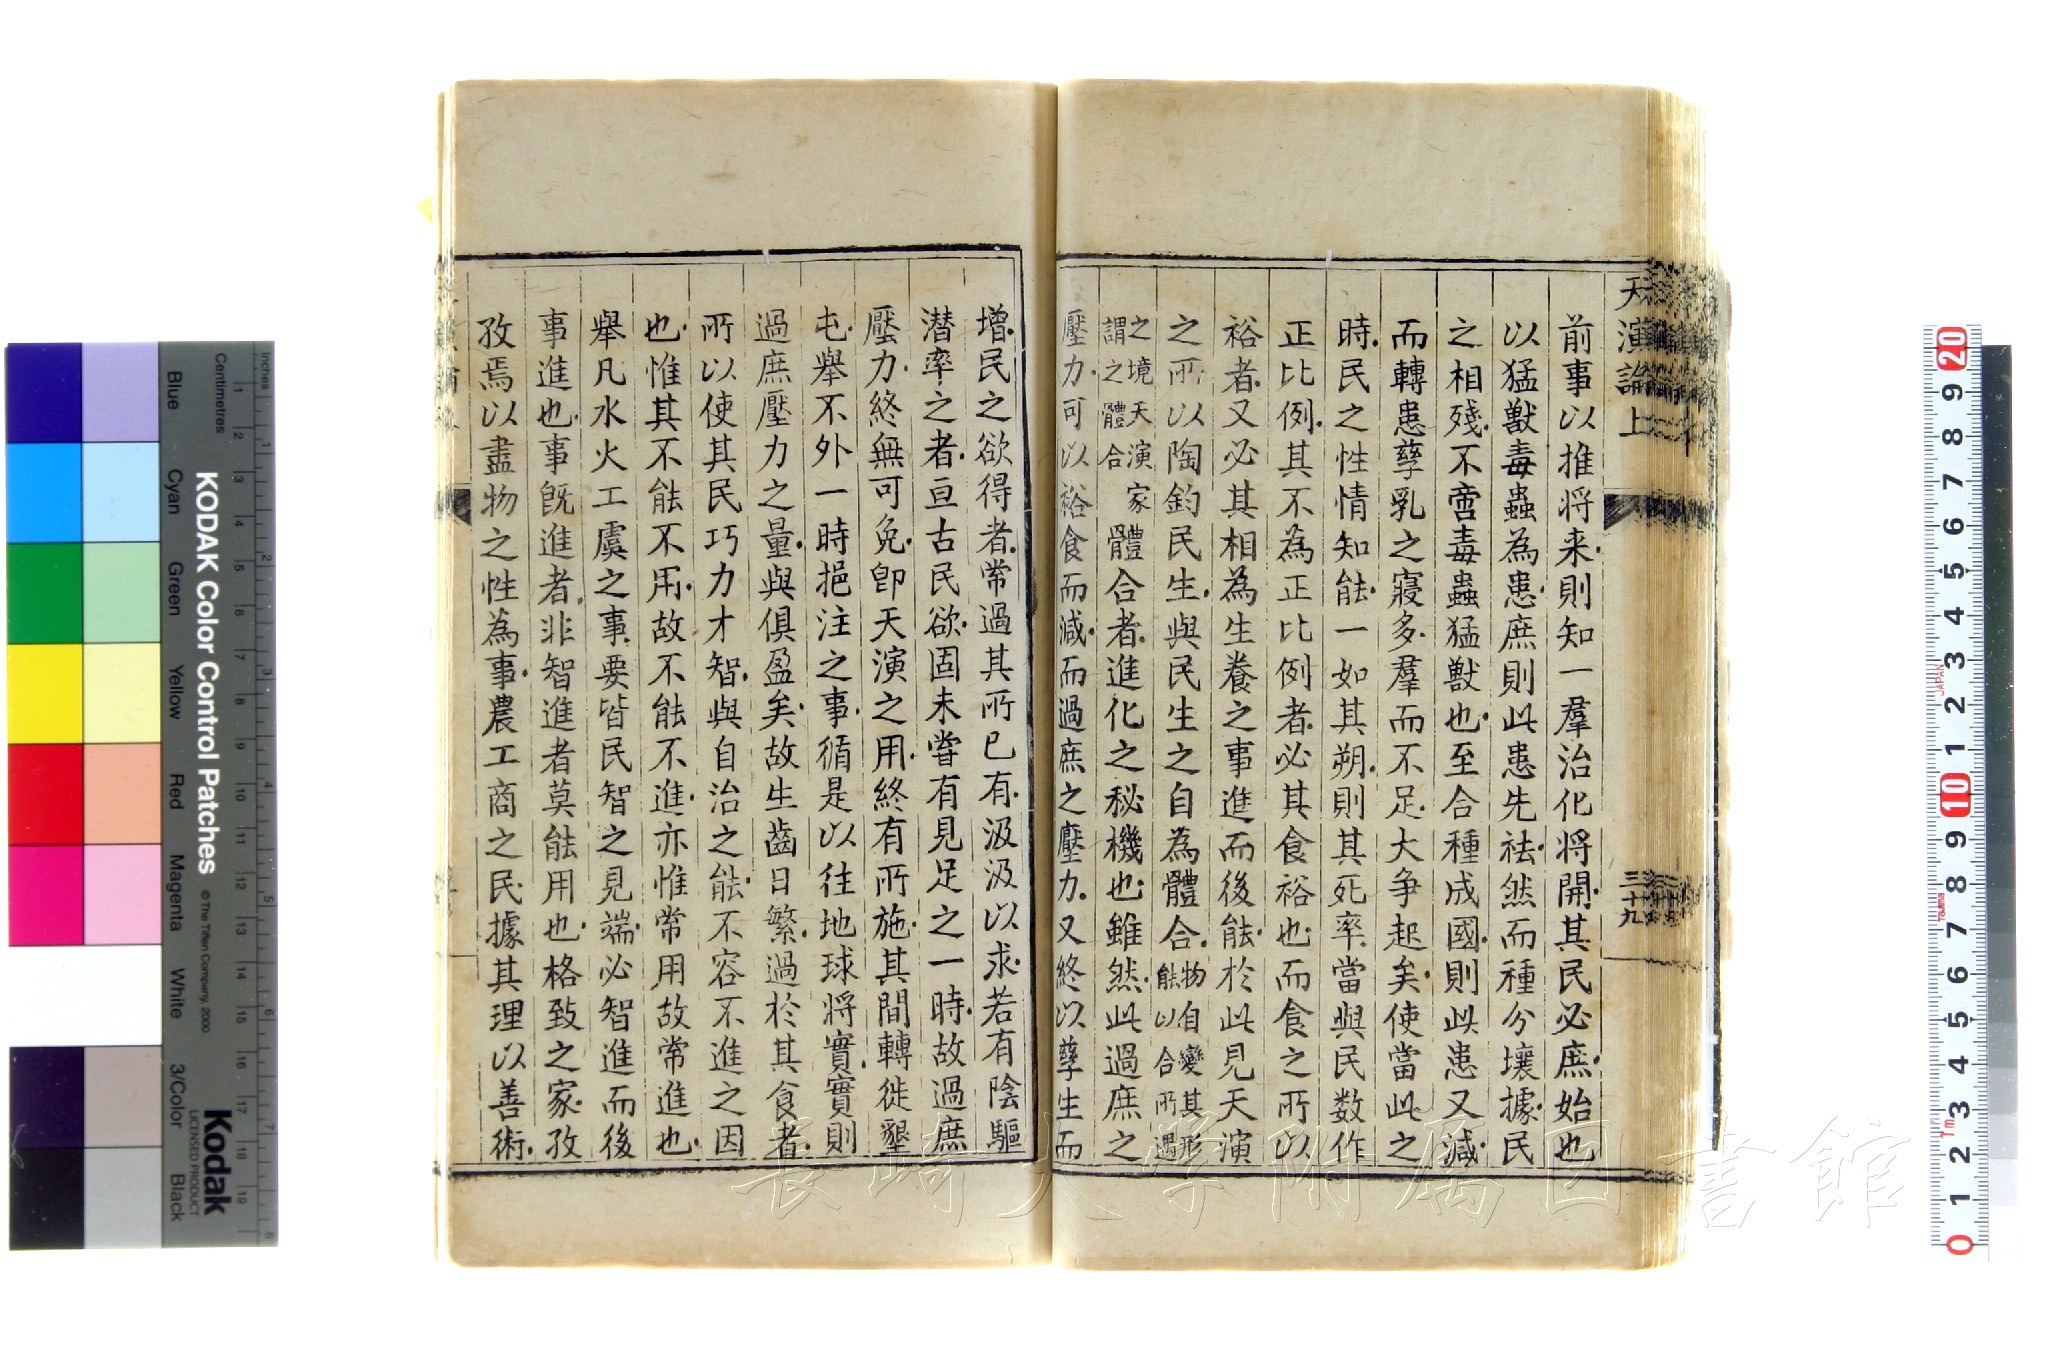 天演論上
三十九
前事以推将来則知一羣治化将開其民必庶始也
以猛獸毒蟲為患庶則此患先祛然而種分壤據民
之相殘不啻毒蟲猛獸也至合種成國則此患又減
而轉患孳乳之寖多羣而不足大争起矣使當此之
時民之性情知能一如其朔則其死率當與民数作
正比例其不為正比例者必其食裕也而食之所以
裕者又必其相為生養之事進而後能於此見天演
之所以陶鈞民生與民生之自為體合物自變其形能以合所遇
之境天演家謂之體合體合者進化之秘機也雖然此過庶之
壓力可以裕食而減而過庶之壓力又終以孳生而
增民之欲得者常過其所已有汲汲以求若有陰驅
潜率之者亘古民欲固未嘗有見足之一時故過庶
壓力終無可免卽天演之用終有所施其間轉徙墾
屯舉不外一時挹注之事循是以往地球將實實則
過庶壓力之量與俱盈矣故生齒日繁過於其食者
所以使其民巧力才智與自治之能不容不進之因
也惟其不能不用故不能不進亦惟常用故常進也
舉凡水火工虞之事要皆民智之見端必智進而後
事進也事旣進者非智進者莫能用也格致之家孜
孜焉以盡物之性為事農工商之民據其理以善術
KODAK Color Control Patches
© The Tiffen Company, 2000
Kodak
LICENSED PRODUCT
Inches
Centimetres
Blue
Cyan
Green
Yellow
Red
Magenta
White
3/Color
Black
JAPAN
Tajima
長崎大学附属図書館